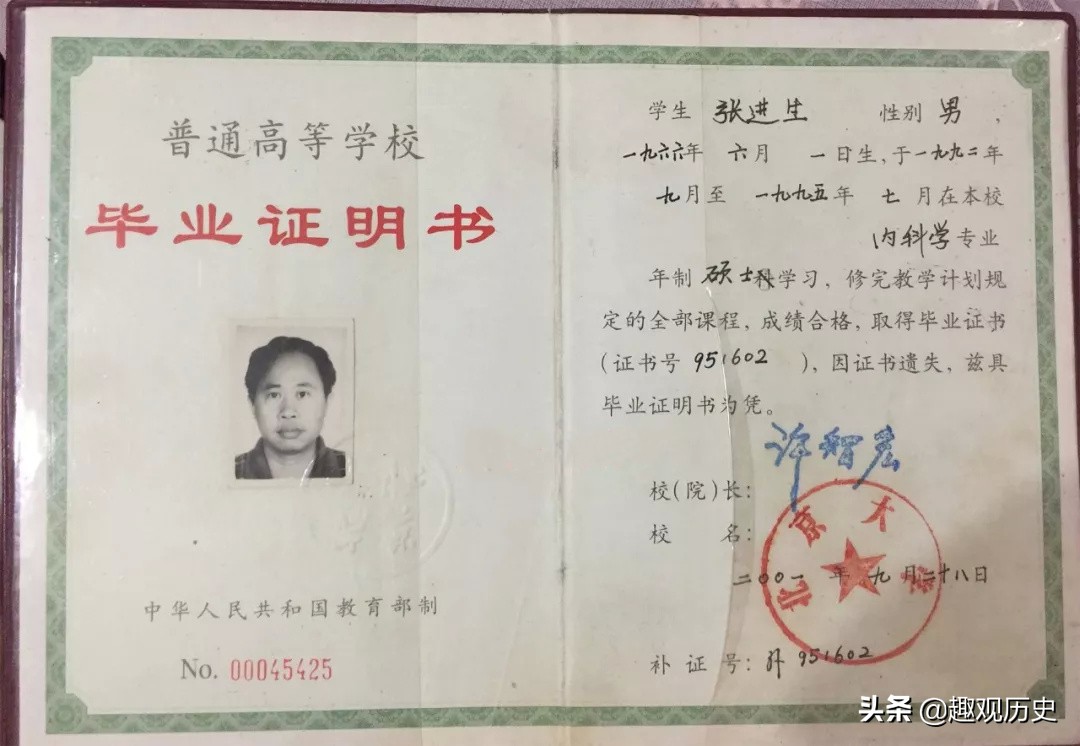 普通高等学校
毕业证明书
中华人民共和国教育部制
No. 00045425
学生 张进生 性别 男 ，
一九六六年 六月 一日生，于一九九二年
九月至 一九九五年 七 月在本校
内科学专业
年制 硕士科学习，修完教学计划规
定的全部课程，成绩合格，取得毕业证书
(证书号 951602 )，因证书遗失，兹具
毕业证明书为凭。
许智宏
校(院)长：
校 名：
北京大学
二〇〇一 年 九 月二十八日
补 证 号：补 951602
头条 @趣观历史